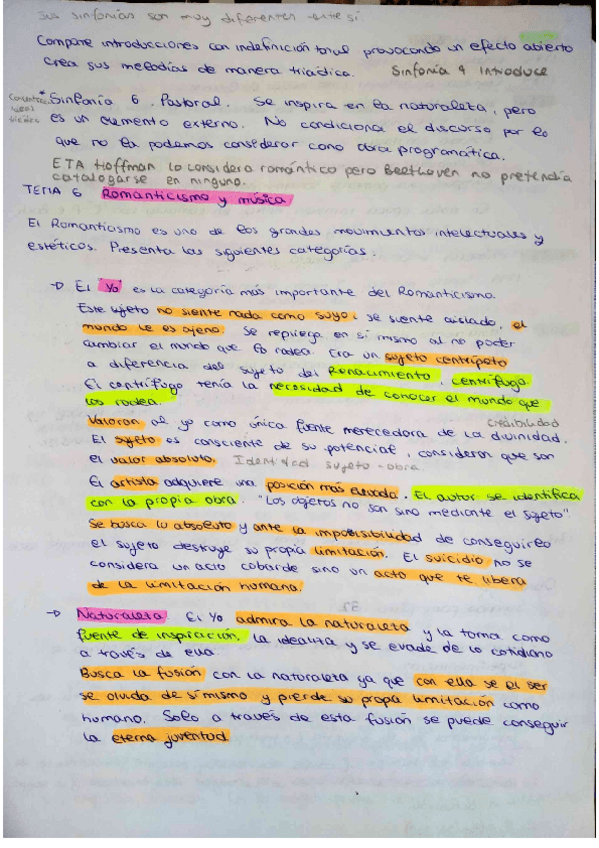 Sus sinfonías son muy diferentes entre sí.
Compone introducciones con indefinición tonal provocando un efecto abierto
Crea sus melodías de manera triádica. Sinfonía 9 introduce
* Sinfonía 6. Pastoral. Se inspira en la naturaleza, pero
es un elemento externo. No condiciona el discurso por lo
que no la podemos considerar como obra programática.
ETA Hoffman lo considera romántico pero Beethoven no pretendía
catalogarse en ninguno.
TEMA 6 Romanticismo y música
El Romanticismo es uno de los grandes movimientos intelectuales y
estéticos. Presenta las siguientes categorías:
→ El "yo" es la categoría más importante del Romanticismo.
Este sujeto no siente nada como suyo, se siente aislado, el
mundo le es ajeno. Se repliega en sí mismo al no poder
cambiar el mundo que lo rodea. Era un sujeto centrípeto
a diferencia del sujeto del Renacimiento, centrífugo.
El centrífugo tenía la necesidad de conocer el mundo que
los rodea.
Valoran al yo como única fuente merecedora de la divinidad. credibilidad
El sujeto es consciente de su potencial, consideran que son
el valor absoluto. Identidad sujeto - obra.
El artista adquiere una posición más elevada. El autor se identifica
con la propia obra. "Los objetos no son sino mediante el sujeto"
Se busca lo absoluto y ante la imposibilidad de conseguirlo
el sujeto destruye su propia limitación. El suicidio no se
considera un acto cobarde sino un acto que te libera
de la limitación humana.
→ Naturaleza. El yo admira la naturaleza
fuente de inspiración, la idealiza y se evade de lo cotidiano y la toma como
a través de ella
Busca la fusión con la naturaleza ya que con ella se el ser
se olvida de sí mismo y pierde su propia limitación como
humano. Solo a través de esta fusión se puede conseguir
la eterna juventud